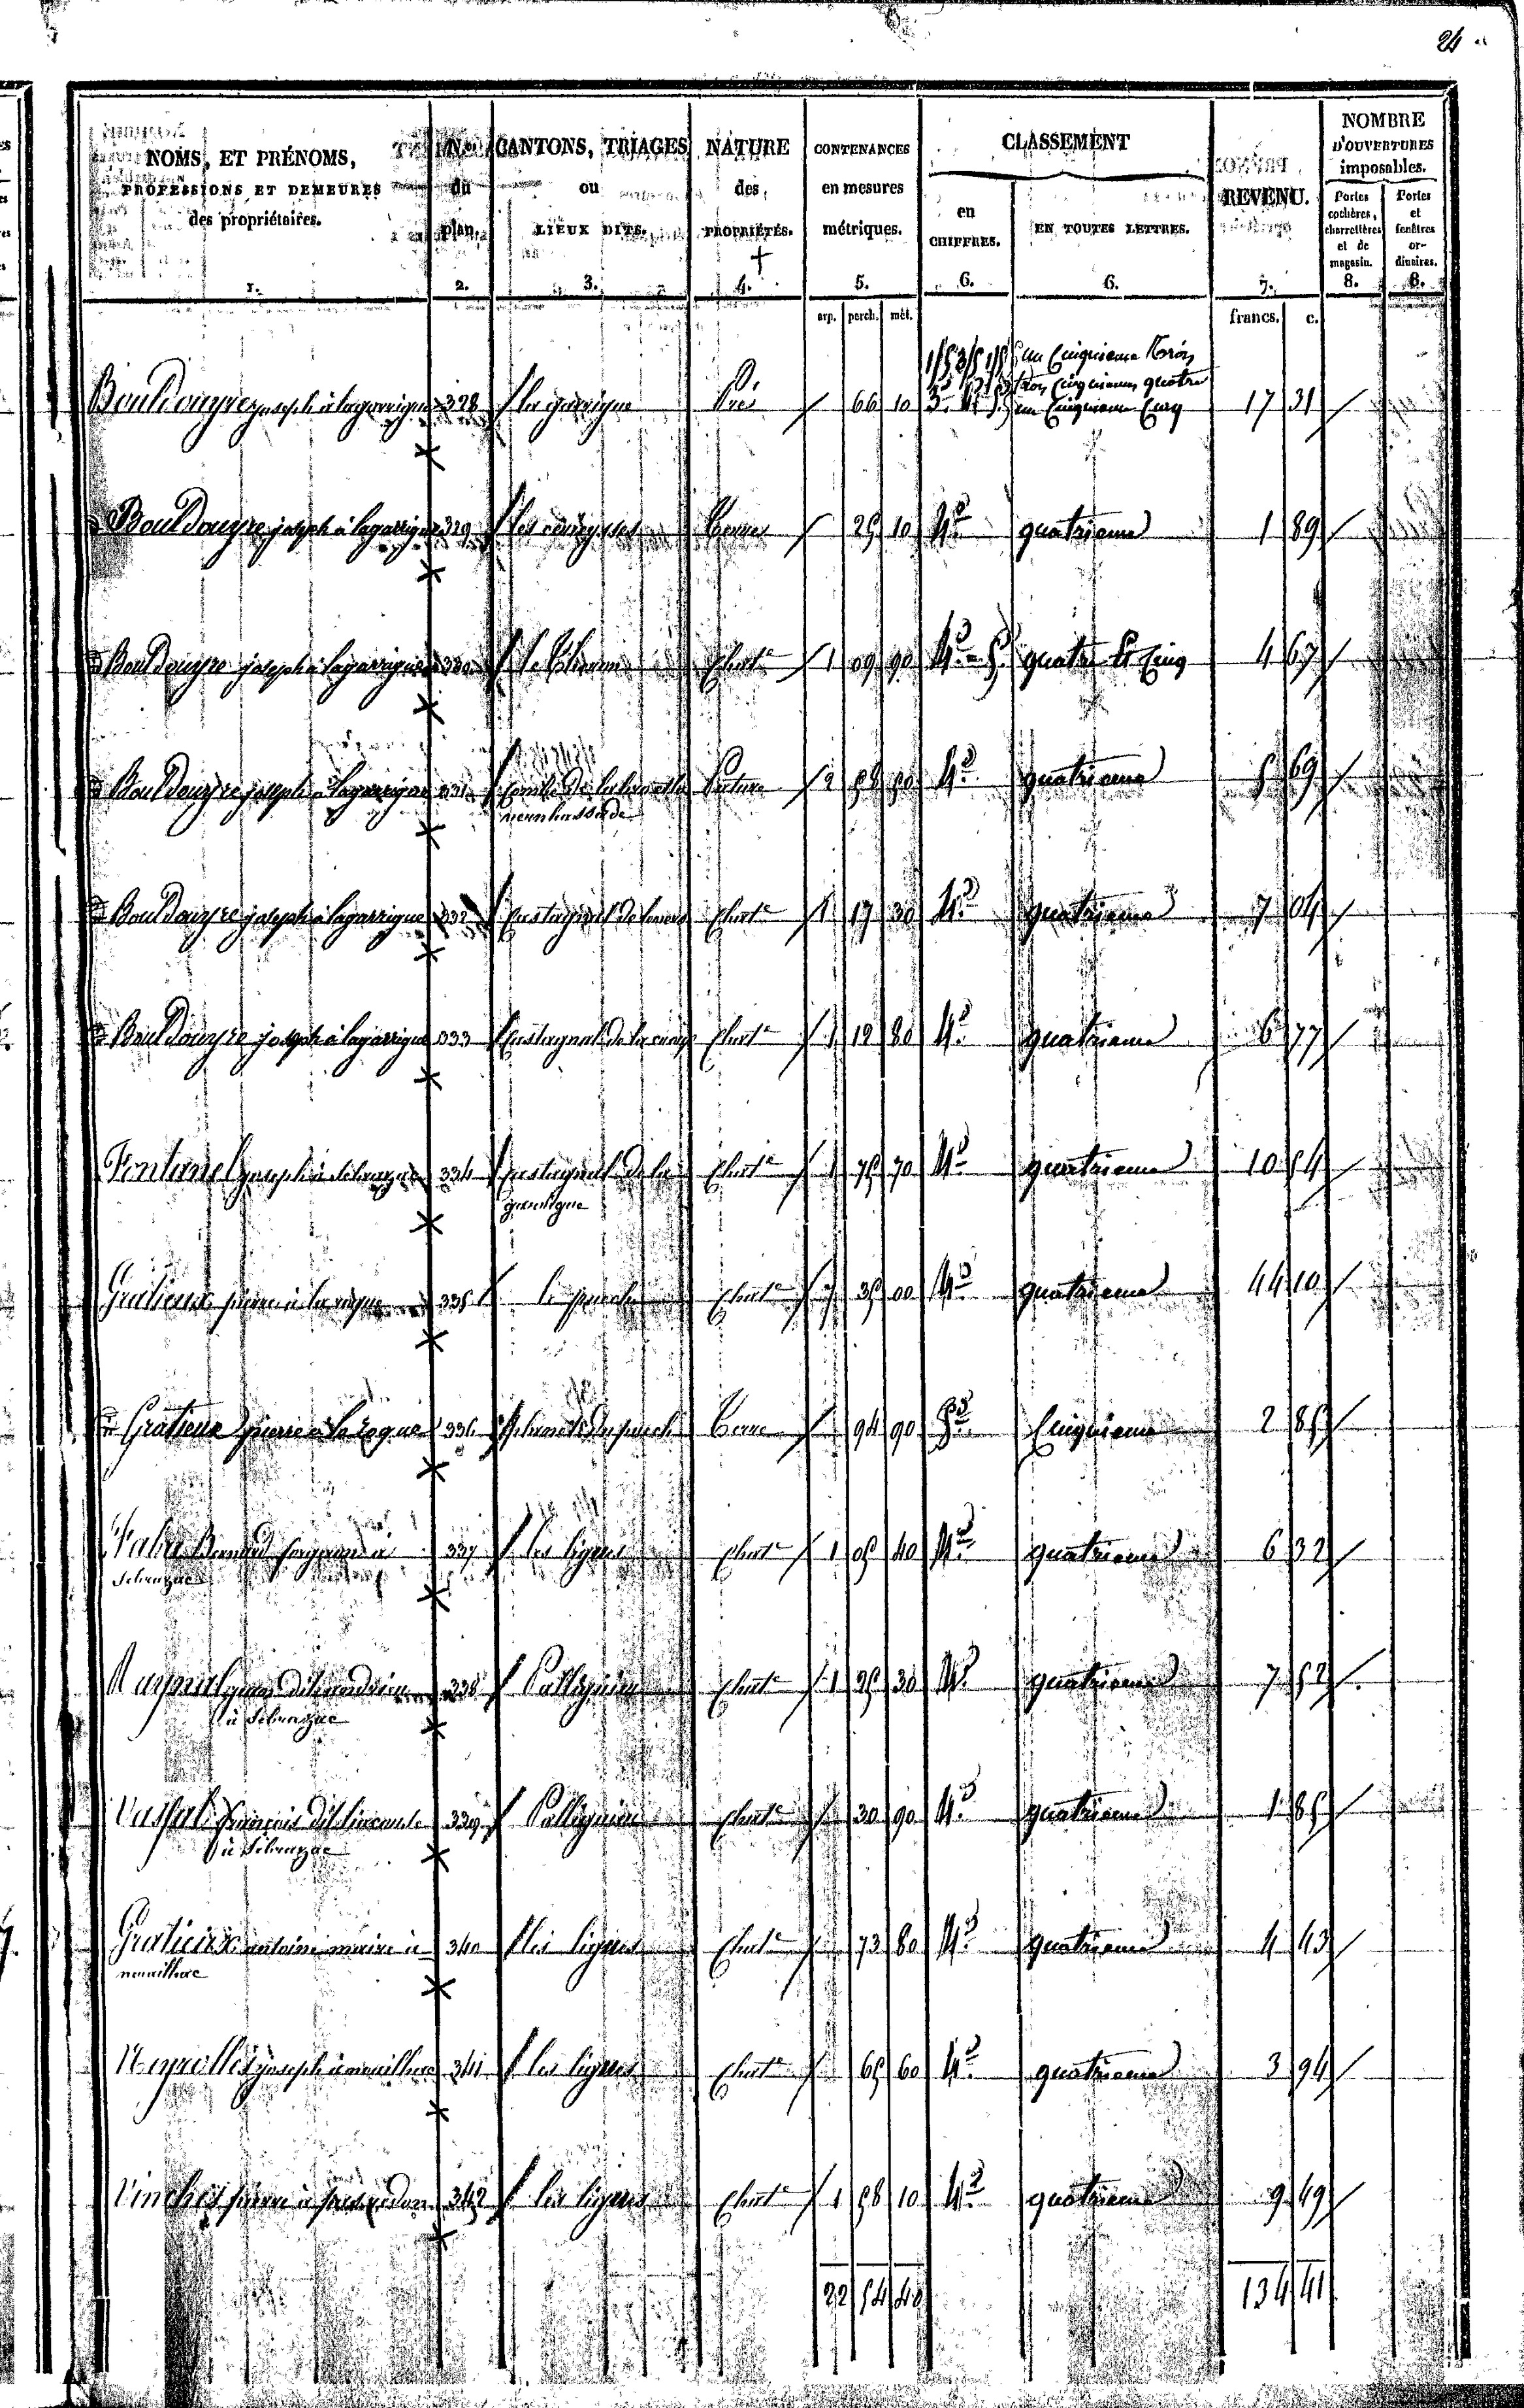 24
NOMS, ET PRÉNOMS, PROFESSIONS ET DEMEURES des propriétaires. 1.
Nos du plan. 2.
CANTONS, TRIAGES ou LIEUX DITS. 3.
NATURE des PROPRIÉTÉS. 4.
CONTENANCES en mesures métriques. 5.
CLASSEMENT
en CHIFFRES. 6.
EN TOUTES LETTRES. 6.
REVENU. 7.
NOMBRE D'OUVERTURES imposables.
Portes cochères, charretières et de magasin. 8.
Portes et fenêtres ordinaires. 8.
arp. perch. mèt. francs. c.
Bouldouyre joseph à lagarrigue 328 la garrigue Prés 66 10 1/5 3/5 1/5 3e 4e 5e un Cinquieme trois trois Cinquiemes quatre un Cinquieme Cinq 17 31
Bouldouyre joseph à lagarrigue 329 les Terres 25 10 4e quatrieme 1 89
Bouldouyre joseph à lagarrigue 330 Chat.e 1 09 90 4e = 5e quatre Et Cinq 4 67
Bouldouyre joseph à lagarrigue 331 Pature 2 58 50 4e quatrieme 5 69
Bouldouyre joseph à lagarrigue 332 Castagnal de Chat.e 1 17 30 4e quatrieme 7 04
Bouldouyre joseph à lagarrigue 333 Castagnal de la Chat.e 1 12 80 4e quatrieme 6 77
Fontanel joseph à 334 Castagnal de la garrigue Chat.e 1 75 70 4e quatrieme 10 54
Gratieux pierre à la roque 335 le puech Chat.e 7 35 00 4e quatrieme 44 10
Gratieux pierre à la roque 336 du puech Terre 94 90 5e Cinquieme 2 85
Fabre Bernard à 337 les ligues Chat.e 1 05 40 4e quatrieme 6 32
338 Chat.e 1 25 30 4e quatrieme 7 52
Vassal françois dit à 339 Chat.e 30 90 4e quatrieme 1 85
Gratieux antoine maire à 340 les ligues Chat.e 73 80 4e quatrieme 4 43
Meyrolles joseph à 341 les ligues Chat.e 65 60 4e quatrieme 3 94
Vinches pierre à 342 les ligues Chat.e 1 58 10 4e quatrieme 9 49
22 54 40 134 41